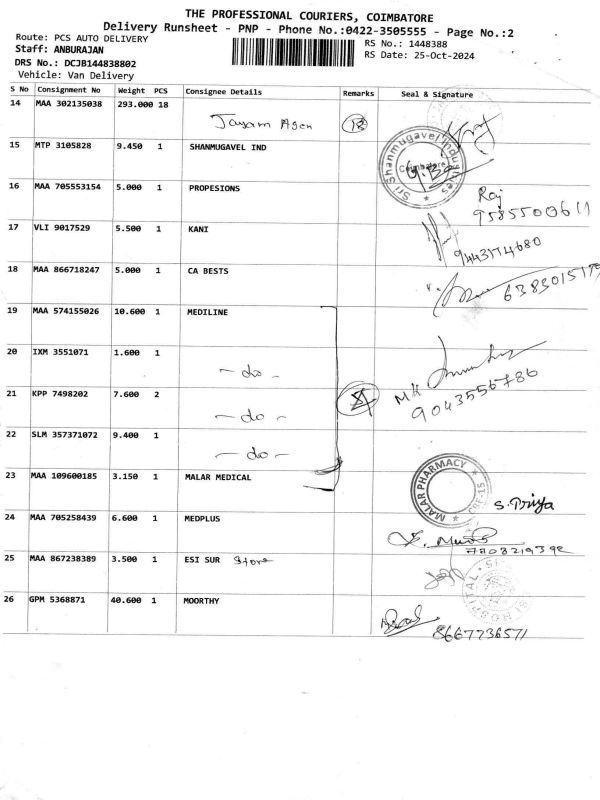 THE PROFESSIONAL COURIERS, COIMBATORE
Delivery Runsheet - PNP - Phone No.:0422-3505555 - Page No.:2
Route: PCS AUTO DELIVERY RS No.: 1448388
Staff: ANBURAJAN RS Date: 25-Oct-2024
DRS No.: DCJB144838802
Vehicle: Van Delivery
S No Consignment No Weight PCS Consignee Details Remarks Seal & Signature
14 MAA 302135038 293.000 18
Jayam Agen 18
15 MTP 3105828 9.450 1 SHANMUGAVEL IND
Sri Shanmugavel Industries
Coimbatore
16 MAA 705553154 5.000 1 PROPESIONS
Raj
9585500611
17 VLI 9017529 5.500 1 KANI
18 MAA 866718247 5.000 1 CA BESTS
19 MAA 574155026 10.600 1 MEDILINE
20 IXM 3551071 1.600 1
- do -
21 KPP 7498202 7.600 2
9043556786
- do -
22 SLM 357371072 9.400 1
- do -
23 MAA 109600185 3.150 1 MALAR MEDICAL
MALAR PHARMACY
CBE-15
S. Priya
24 MAA 705258439 6.600 1 MEDPLUS
25 MAA 867238389 3.500 1 ESI SUR Store
26 GPM 5368871 40.600 1 MOORTHY
8667736571